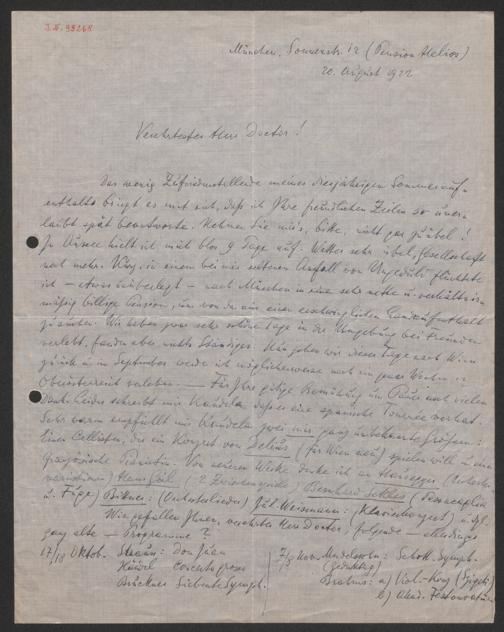 I.N. 99268
München, Sonnenstr. 12 (Pension Helios)
20. August 1922
Verehrtester Herr Doctor!
Das wenig Zufriedenstellende meines diesjährigen Sommerauf-
enthalts bringt es mit sich, daß ich Ihre freundlichen Zeilen so uner-
laubt spät beantworte. Nehmen Sie mir's, bitte, nicht gar zu übel!
In Aussee hielt ich mich blos 9 Tage auf. Wetter sehr übel, Gesellschaft
noch mehr. Kurz, in einem bei mir seltenen Anfall von Ungeduld flüchtete
ich – etwas unüberlegt – nach München in eine sehr nette u. verhältnis-
mäßig billige Pension, um von da aus einen erschwinglichen Landaufenthalt
zu suchen. Wir haben zwar sehr schöne Tage in der Umgebung bei Freunden
verlebt, fanden aber nichts Ständiges. Nun gehen wir dieser Tage nach Wien
zurück u. im September werde ich möglicherweise noch ein paar Wochen in
Oberösterreich erleben. — Für Ihre gütige Bemühung in Paris noch vielen
Dank. Leider schreibt mir Kandela, daß er eine spanische Tournee vorhat.
Sehr warm empfiehlt mir Kandela zwei mir ganz unbekannte Größen:
einen Cellisten, der ein Konzert von Delius (für Wien neu) spielen will u. eine
französische Pianistin. Von neueren Werken denke ich an Honegger (Orchester-
variationen) Hans Gál (2 Zwischenspiele) Bernhard Sekles (Passacaglia
u. Fuge) Bittner: (Orchesterlieder) Jul. Weismann: (Klavierkonzert) u. dgl.
Wie gefallen Ihnen, verehrter Herr Doctor, folgende – allerdings
ganz alte – Programme?
17/18 Oktob. Strauss: Don Juan
Händel Concerto grosso
Bruckner Siebente Symph.
7/8 Nov. Mendelssohn: Schott. Symph.
(Gedenktag)
Brahms: a) Viol.-Konz (Szigeti)
b) Akad. Festouvertüre